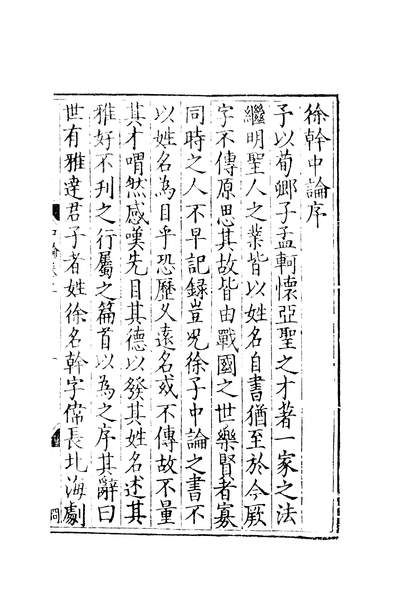 徐幹中論序
予以荀卿子孟軻懷亞聖之才著一家之法
繼明聖人之業皆以姓名自書猶至於今厥
字不傳原思其故皆由戰國之世樂賢者寡
同時之人不早記錄豈況徐子中論之書不
以姓名為目乎恐歷久遠名或不傳故不量
其才喟然感嘆先目其德以發其姓名述其
雅好不刋之行屬之篇首以為之序其辭曰
世有雅達君子者姓徐名幹字偉長北海劇